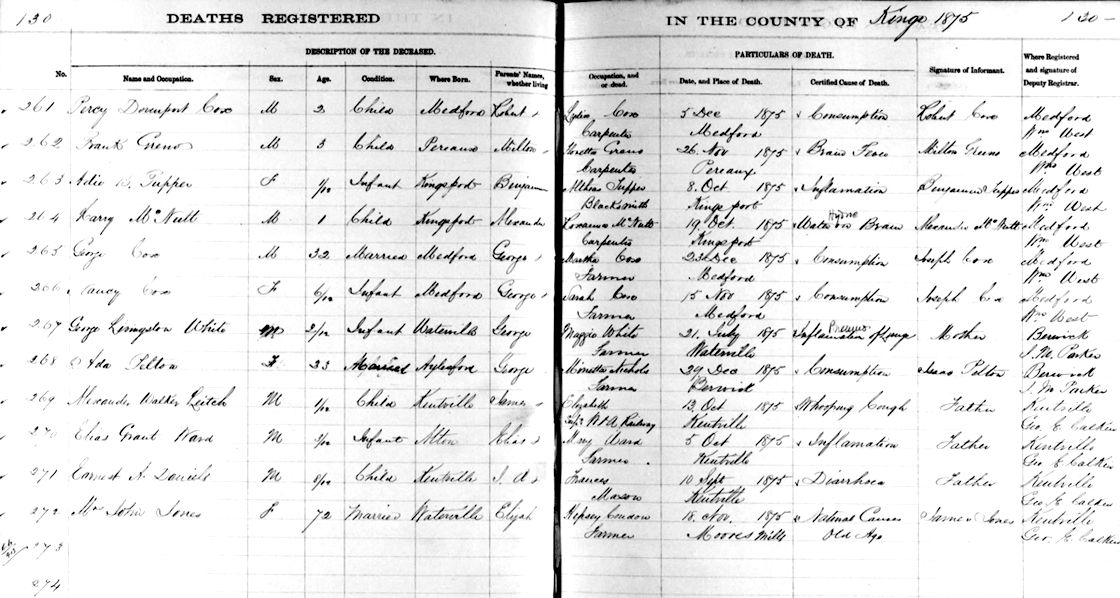 130 DEATHS REGISTERED IN THE COUNTY OF Kings 1875 130
DESCRIPTION OF THE DECEASED. PARTICULARS OF DEATH.
No. Name and Occupation. Sex. Age. Condition. Where Born. Parents' Names, whether living Occupation, and or dead. Date, and Place of Death. Certified Cause of Death. Signature of Informant. Where Registered and signature of Deputy Registrar.
261 Percy Davenport Cox M 2 Child Medford Robert Lydia Cox 5 Dec 1875 Consumption Robert Cox Medford
Carpenter Medford Wm West
262 Frank Greno M 3 Child Pereaux Milton Loretta Greno 26 Nov 1875 Brain Fever Milton Greno Medford
Carpenter Pereaux Wm West
263 Adie B. Tupper F 1/12 Infant Kingsport Benjamin Tupper 8. Oct 1875 Inflamation Benjamin Tupper Medford
Blacksmith Kingsport Wm West
264 Harry McNutt M 1 Child Kingsport Alexander McNutt 19 Oct. 1875 Water on Brain Hydro Alexander McNutt Medford
Carpenter Kingsport Wm West
265 George Cox M 32 Married Medford George Martha Cox 23 Dec 1875 Consumption Joseph Cox Medford
Farmer Medford Wm West
266 Nancy Cox F 6/12 Infant Medford George Sarah Cox 15 Nov 1875 Consumption Joseph Cox Medford
Farmer Medford Wm West
267 George Livingston White M 2/12 Infant Waterville George Maggie White 21. July 1875 Inflamation of Lungs Pneumo Mother Berwick
Farmer Waterville S. M. Parker
268 Ada Pelton F 23 Married Aylesford George Minetta Nichols 29 Dec 1875 Consumption Isaac Pelton Berwick
Farmer Berwick S. M. Parker
269 Alexander Walker Leitch M 1/12 Child Kentville James Elizabeth 13. Oct 1875 Whooping Cough Father Kentville
W & A Railway Kentville Geo. E. Calkin
270 Elias Grant Ward M Infant Alton Elias Mary Ward 5 Oct 1875 Inflamation Father Kentville
Farmer Kentville Geo E Calkin
271 Earnest A. Daniels M 8/12 Child Kentville I. A. Frances 10 Sept 1875 Diarrhoea Father Kentville
Mason Kentville Geo. E. Calkin
272 Mrs John Jones F 72 Married Waterville Elijah Kepsey Condon 18. Nov. 1875 Natural Causes James Jones Kentville
Farmer Moores Mills Old Age Geo. E. Calkin
273
274